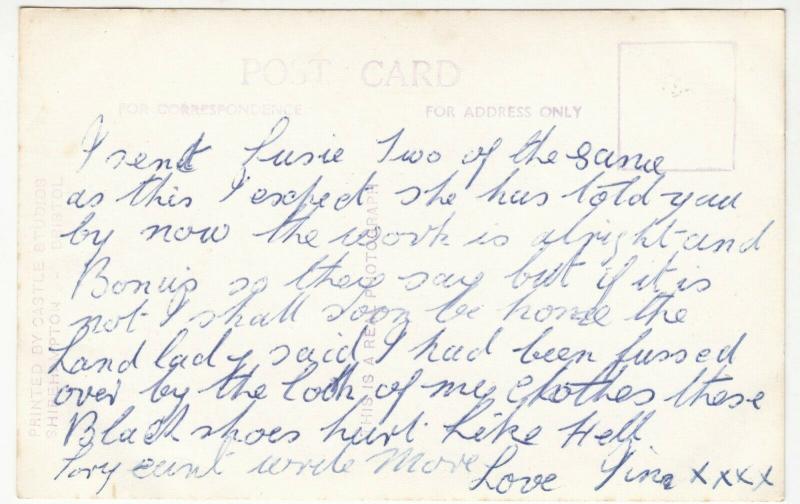 POST CARD
FOR CORRESPONDENCE
FOR ADDRESS ONLY
I sent Susie Two of the same
as this I expect she has told you
by now the work is alright and
Bonus so they say but if it is
not I shall soon be home the
Land lady said I had been fussed
over by the look of my clothes these
Black shoes hurt Like Hell
cant write More
Love xxxx
PRINTED BY CASTLE STUDIOS
SHIREHAMPTON - BRISTOL
THIS IS A REAL PHOTOGRAPH